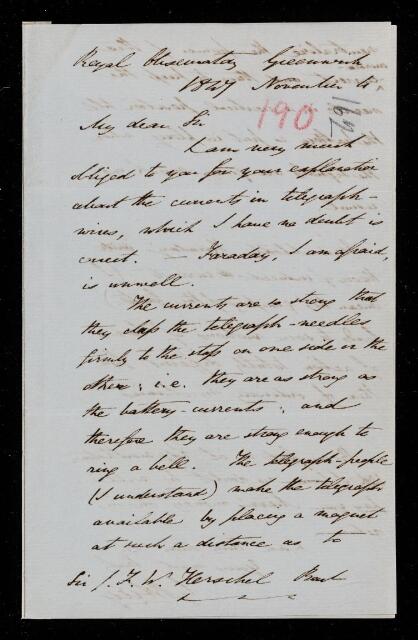 Royal Observatory Greenwich
1847 November 4
190
169
My dear Sir
I am very much
obliged to you for your explanation
about the currents in telegraph-
wires, which I have no doubt is
correct. — Faraday, I am afraid,
is unwell.
The currents are so strong that
they clap the telegraph-needles
firmly to the stops on one side or the
other; i.e. they are as strong as
the battery-currents; and
therefore they are strong enough to
ring a bell. The telegraph-people
(I understand) make the telegraph
available by placing a magnet
at such a distance as to
Sir J. F. W. Herschel Bart